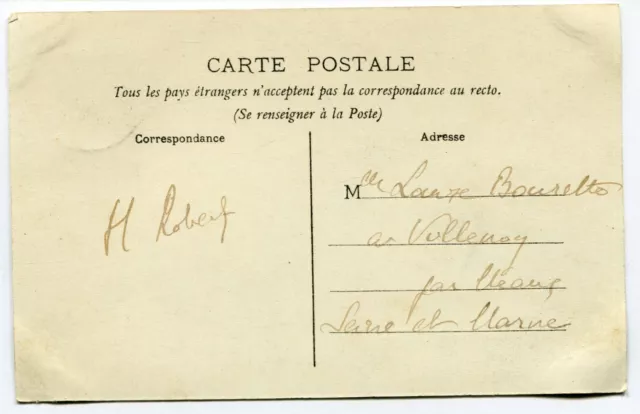 CARTE POSTALE
Tous les pays étrangers n'acceptent pas la correspondance au recto.
(Se renseigner à la Poste)
Correspondance
Adresse
H Robert
Mlle
à Villenoy
par Meaux
Seine et Marne